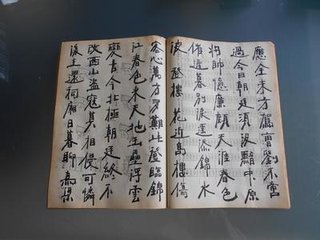 應全未方駕曹劉不啻
過今日朝廷須汲黯中原
將帥憶廉頗天涯春色
催遲暮別淚遙添錦水
波 登樓 花近高樓傷
客心萬方多難此登臨錦
江春色來天地玉壘浮雲
變古今北極朝廷終不
改西山盜寇莫相侵可憐
後主還祠廟日暮聊為梁